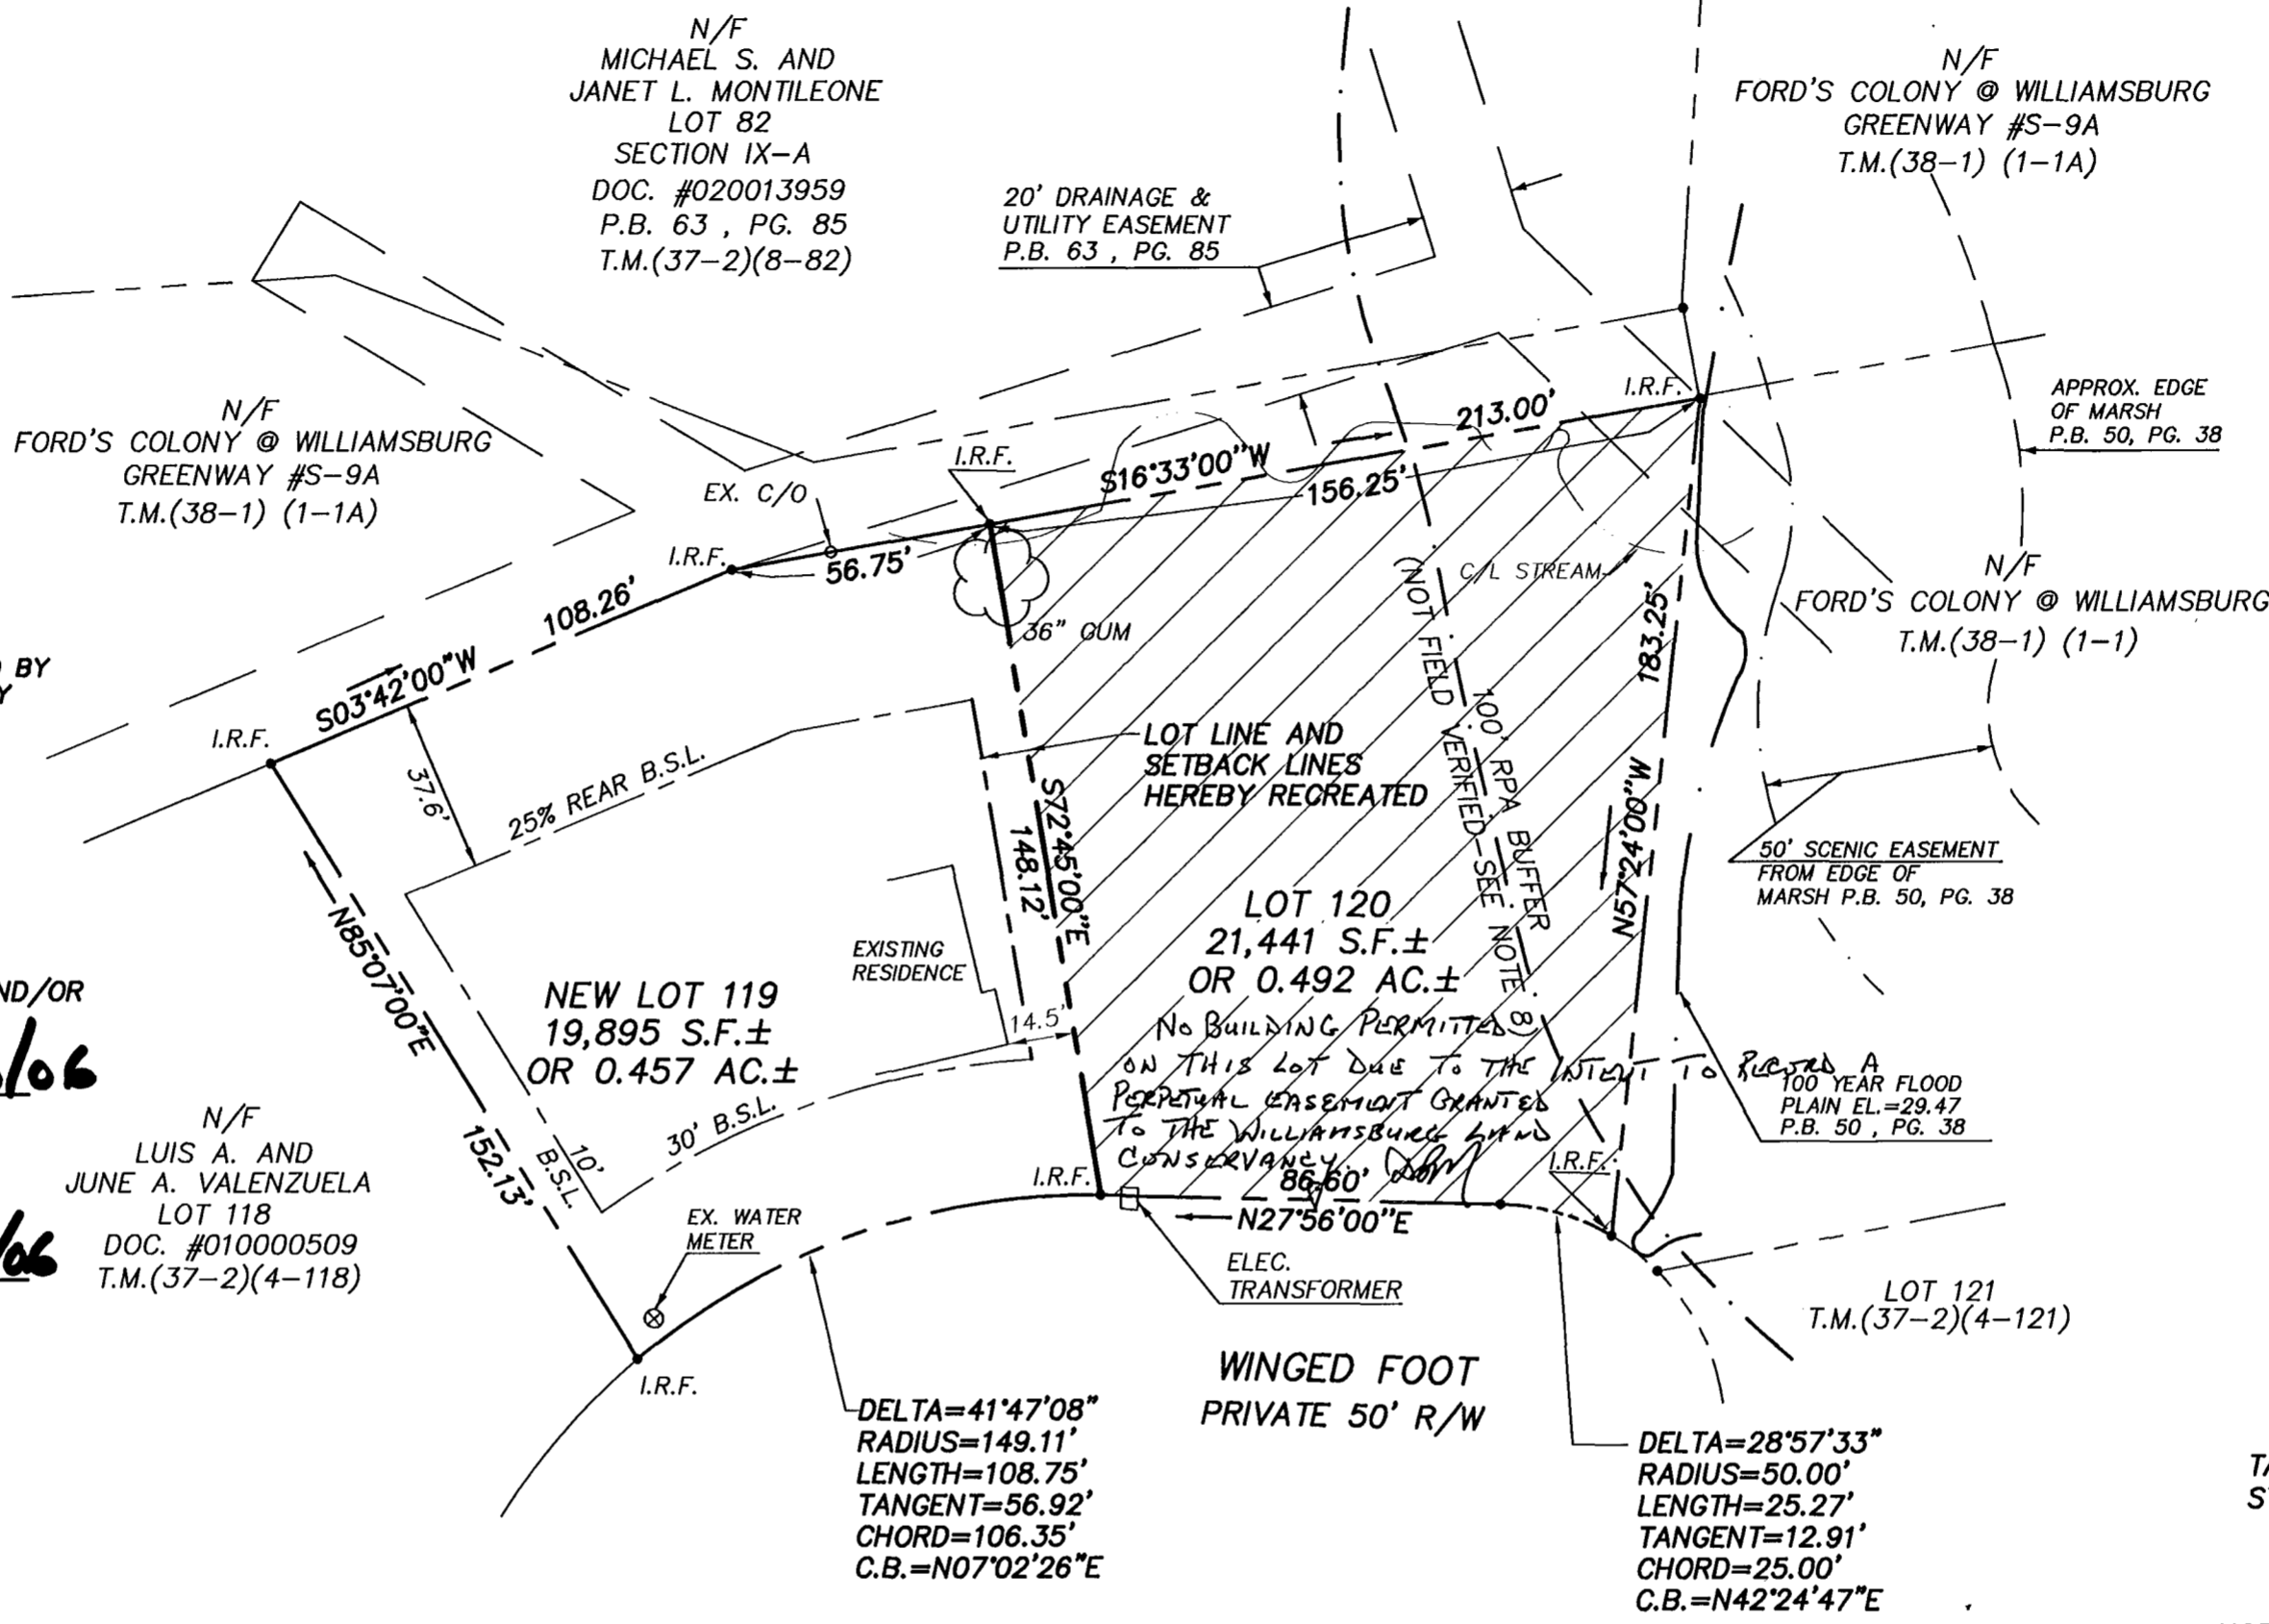 N/F
MICHAEL S. AND
JANET L. MONTILEONE
LOT 82
SECTION IX-A
DOC. #020013959
P.B. 63 , PG. 85
T.M.(37-2)(8-82)
20' DRAINAGE &
UTILITY EASEMENT
P.B. 63 , PG. 85
N/F
FORD'S COLONY @ WILLIAMSBURG
GREENWAY #S-9A
T.M.(38-1) (1-1A)
N/F
FORD'S COLONY @ WILLIAMSBURG
GREENWAY #S-9A
T.M.(38-1) (1-1A)
APPROX. EDGE
OF MARSH
P.B. 50, PG. 38
I.R.F.
213.00'
I.R.F.
S16°33'00"W
156.25'
EX. C/O
I.R.F.
56.75'
108.26'
S03°42'00"W
I.R.F.
36" GUM
C/L STREAM
N/F
FORD'S COLONY @ WILLIAMSBURG
T.M.(38-1) (1-1)
BY
37.6'
25% REAR B.S.L.
LOT LINE AND
SETBACK LINES
HEREBY RECREATED
S72°45'00"E
148.12'
100' RPA BUFFER
(NOT FIELD VERIFIED-SEE NOTE 8)
183.25'
N57°24'00"W
50' SCENIC EASEMENT
FROM EDGE OF
MARSH P.B. 50, PG. 38
N85°07'00"E
152.13'
EXISTING
RESIDENCE
NEW LOT 119
19,895 S.F.±
OR 0.457 AC.±
14.5'
LOT 120
21,441 S.F.±
OR 0.492 AC.±
NO BUILDING PERMITTED
ON THIS LOT DUE TO THE INTENT TO RECORD A
PERPETUAL EASEMENT GRANTED
TO THE WILLIAMSBURG LAND
CONSERVANCY.
100 YEAR FLOOD
PLAIN EL.=29.47
P.B. 50 , PG. 38
ND/OR
/06
10'
B.S.L.
30' B.S.L.
N/F
LUIS A. AND
JUNE A. VALENZUELA
LOT 118
DOC. #010000509
T.M.(37-2)(4-118)
/06
EX. WATER
METER
I.R.F.
I.R.F.
86.60'
N27°56'00"E
I.R.F.
ELEC.
TRANSFORMER
LOT 121
T.M.(37-2)(4-121)
WINGED FOOT
PRIVATE 50' R/W
DELTA=41°47'08"
RADIUS=149.11'
LENGTH=108.75'
TANGENT=56.92'
CHORD=106.35'
C.B.=N07°02'26"E
DELTA=28°57'33"
RADIUS=50.00'
LENGTH=25.27'
TANGENT=12.91'
CHORD=25.00'
C.B.=N42°24'47"E